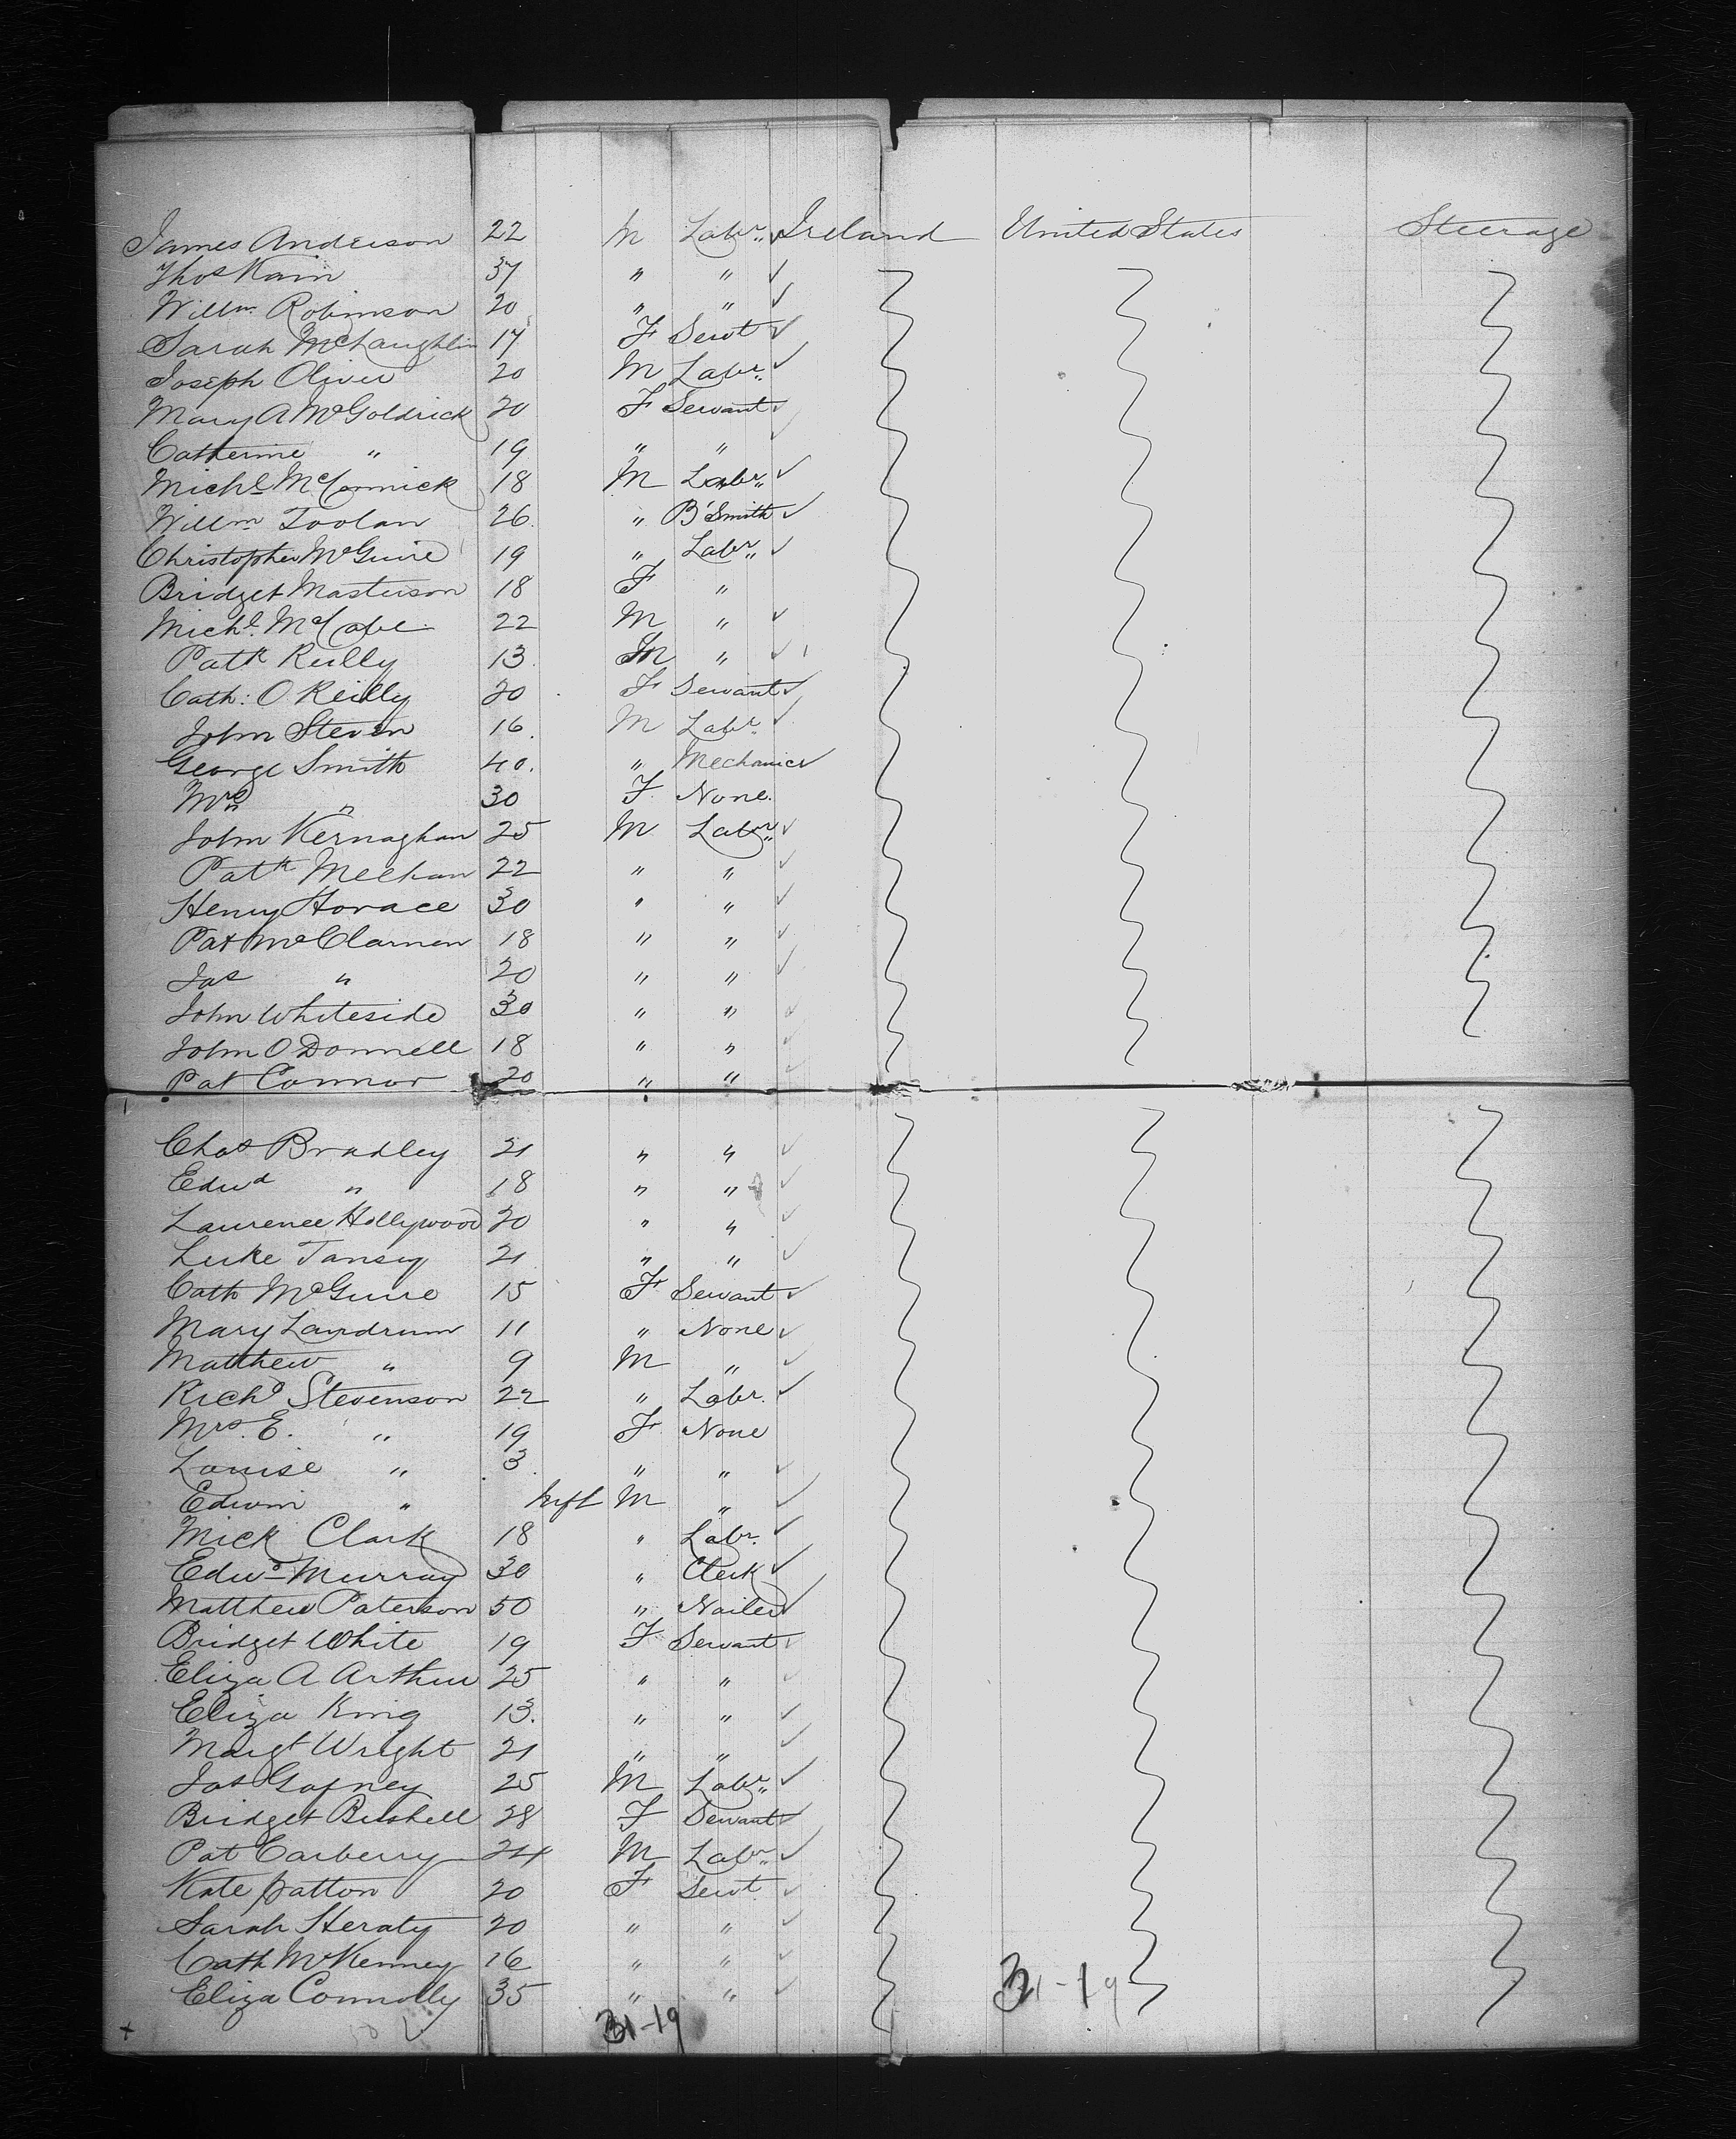 James Anderson 22 M Labr„ Ireland United States Steerage
Thos Kain 37 " "
Willm Robinson 20 " "
Sarah McLaughlin 17 F Servt
Joseph Oliver 20 M Labr„
Mary A McGoldrick 20 F Servant
Catherine " 19 " "
Michl McCormick 18 M Labr„
Willm Toolan 26 " B'Smith
Christopher McGuire 19 " Labr„
Bridget Masterson 18 F "
Michl McCabe 22 M "
Patk Reilly 13 M "
Cath: O Reilly 20 F Servant
John Steven 16 M Labr„
George Smith 40 " Mechanic
Mrs " 30 F None
John Kernaghan 25 M Labr„
Patk Meehan 22 " "
Henry Horace 30 " "
Pat McClarnen 18 " "
Jas " 20 " "
John Whiteside 30 " "
John O Donnell 18 " "
Pat Connor 20 " "
Chas Bradley 21 " "
Edwd " 18 " "
Laurence Hollywood 20 " "
Luke Tansey 21 " "
Cath McGuire 15 F Servant
Mary Landrum 11 " None
Matthew " 9 M "
Richd Stevenson 22 " Labr.
Mrs. E. " 19 F None
Louise " 3 " "
Edwin " Inft M "
Mick Clark 18 " Labr.
Edwd Murray 30 " Clerk
Matthew Paterson 50 " Nailer
Bridget White 19 F Servant
Eliza A Arthur 25 " "
Eliza King 13. " "
Margt Wright 21 " "
Jas Gafney 25 M Labr„
Bridget Bushell 28 F Servant
Pat Carberry 24 M Labr„
Kate Patton 20 F Servt
Sarah Heraty 20 " "
Cath McKenney 16 " "
Eliza Connolly 35 " "
31-19 31-19